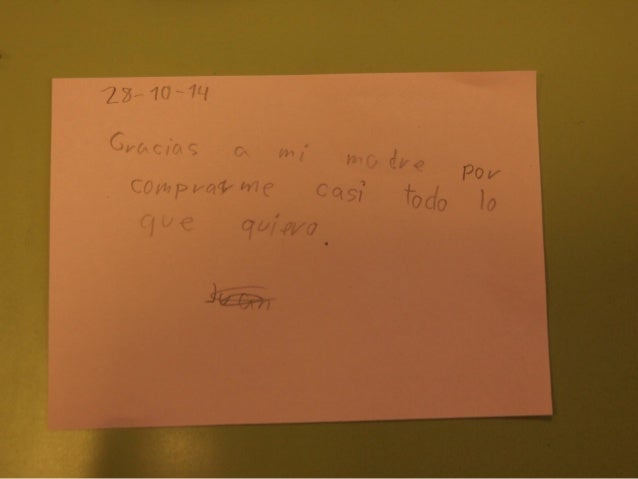 28-10-14
Gracias a mi madre por
comprarme casi todo lo
que quiero.